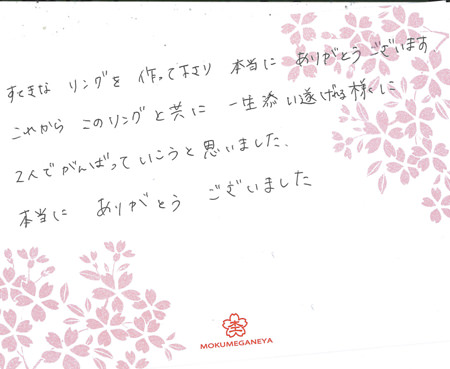 すてきな リングを 作って下さり 本当に ありがとうございます
これから このリングと共に 一生添い遂げる様に
2人でがんばっていこうと思いました、
本当に ありがとう ございました
MOKUMEGANEYA